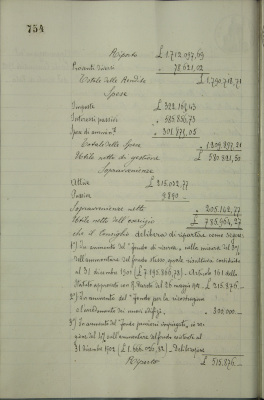 754
Riporto £ 1,712,097,69
Proventi diversi " 78,621,02
Totale delle Rendite £ 1,790,718,71
Spese
Imposte £ 322,167,43
Interessi passivi
Spese di amministr.
Totale delle Spese £ 1,209,897,21
Utile netto di gestione £ 580,821,50
Sopravvenienze
Attive £
Passive
Sopravvenienze nette 205,142,77
Utile netto dell'esercizio £ 785,964,27
che il Consiglio delibera di ripartire come segue:
1°) In aumento del "fondo di riserva", nella misura del
dell'ammontare del fondo stesso quale risultava costituito
al 31 dicembre 1901 Articolo 161 dello
Statuto approvato con R. Decreto del 26 maggio £ 215,876 -
2°) In aumento del "fondo per la ricostruzione
e l'arredamento di nuovi edifizi" 300,000 -
3°) In aumento del "fondo pensioni impiegati", in ra-
gione del dell'ammontare del fondo esistente al
31 dicembre 1902 Deliberazione
Riporto £ 515,876 -